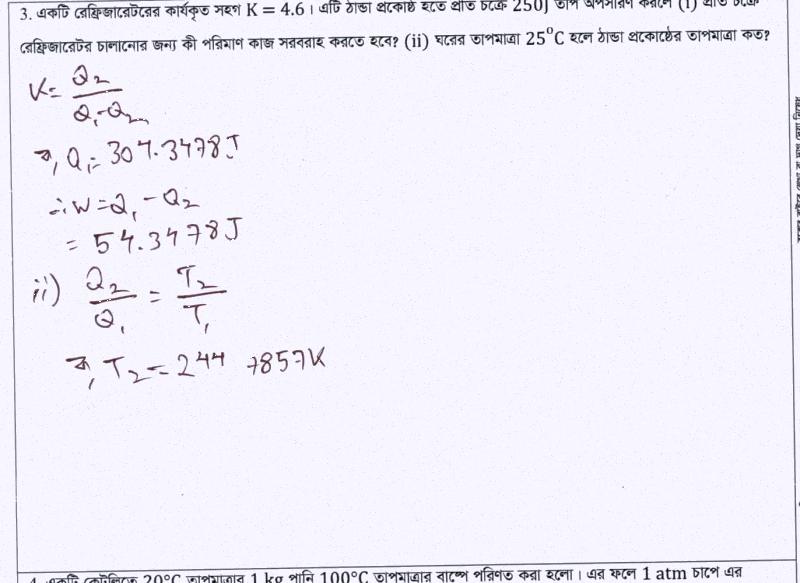 3. একটি রেফ্রিজারেটরের কার্যকৃত সহগ K = 4.6। এটি ঠান্ডা প্রকোষ্ঠ হতে প্রতি চক্রে 250J তাপ অপসারণ করলে (i) প্রতি চক্রে
রেফ্রিজারেটর চালানোর জন্য কী পরিমাণ কাজ সরবরাহ করতে হবে? (ii) ঘরের তাপমাত্রা 25°C হলে ঠান্ডা প্রকোষ্ঠের তাপমাত্রা কত?
K = Q₂ / (Q₁-Q₂)
বা, Q₁ = 304.3478J
∴ W = Q₁ - Q₂
= 54.3478J
ii) Q₂/Q₁ = T₂/T₁
বা, T₂ = 244 7857K
4. একটি কেটলিতে 20°C তাপমাত্রার 1 kg পানি 100°C তাপমাত্রার বাষ্পে পরিণত করা হলো। এর ফলে 1 atm চাপে এর